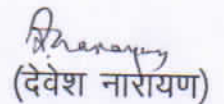 (देवेश नारायण)